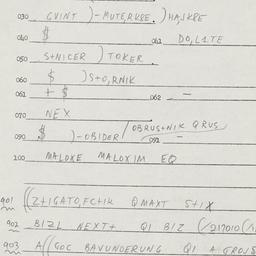 030 GVINT )-MUTERKSE. ) HAJKRE
040 $ 041 DO,LITE
050 S+NICER ) TOKER.
060 $ )S+O,RNIK
061 + $ 062 -
070 NEX
090 $ )-OBIDER / OBRUS+NIK QRUS 091 -
100 MALOKE MALOXIM EQ
901 ((Z+IGATO,FCHIK QMAXT S+IX
902 BIZL NEXT+ QI BIZ (/217010(
903 A((GOC BAVUNDERUNG QI A GROJS